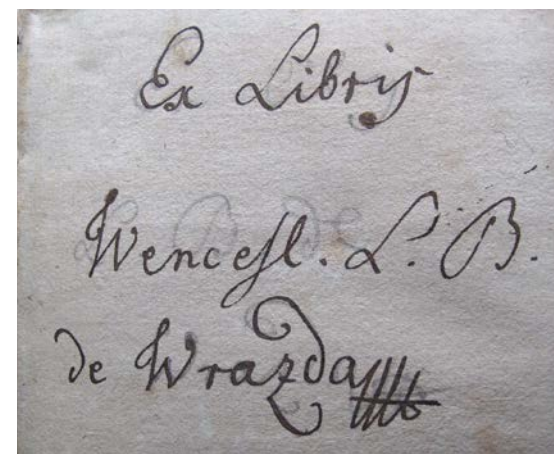 Ex Libris
Wencesl. L. B.
de Wrazda